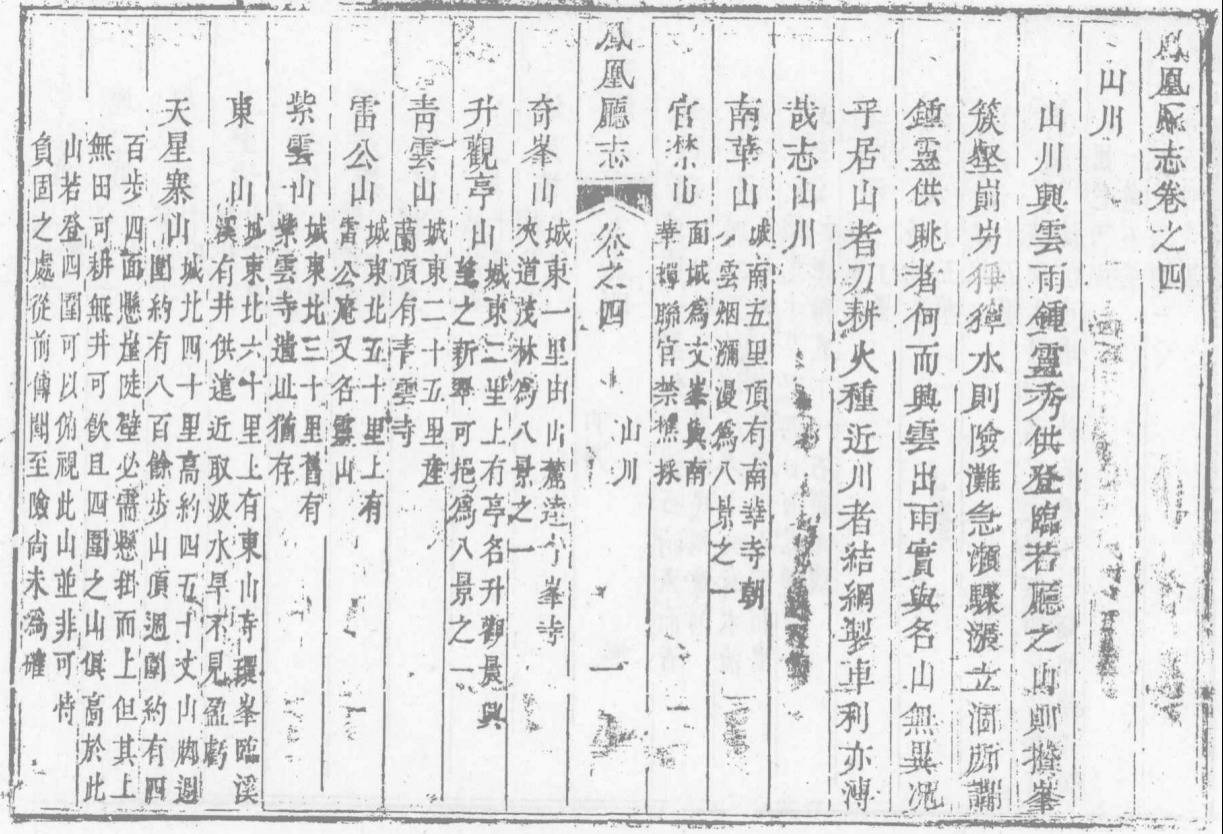 鳳凰廳志卷之四
山川
山川興雲雨鍾靈秀供登臨若廳之山則攢峯
簇壑崱屴猙獰水則險灘急瀨驟漲立涸所謂
鍾靈供眺者何而興雲出雨實與名山無異况
乎居山者刀耕火種近川者結網製車利亦溥
哉志山川
南華山城南五里頂有南華寺朝
夕雲烟瀰漫爲八景之一
官禁山面城爲文峯與南
華環聯官禁樵採
鳳凰廳志
卷之四
山川
一
奇峯山城東一里由山麓達奇峯寺
夾道茂林爲八景之一
升觀亭山城東二里上有亭名升觀晨興
望之新翠可挹爲八景之一
靑雲山城東二十五里產
蘭頂有靑雲寺
雷公山城東北五十里上有
雷公庵又名靈山
紫雲山城東北三十里舊有
紫雲寺遺址猶存
東山城東北六十里上有東山寺環峯臨溪
溪有井供遠近取汲水旱不見盈虧
天星寨山城北四十里高約四五十丈山脚週
圍約有八百餘步山頂週圍約有四
百步四面懸崖陡壁必需懸掛而上但其上
無田可耕無井可飲且四圍之山俱高於此
山若登四圍可以俯視此山並非可恃
負固之處從前傳聞至險尚未爲確